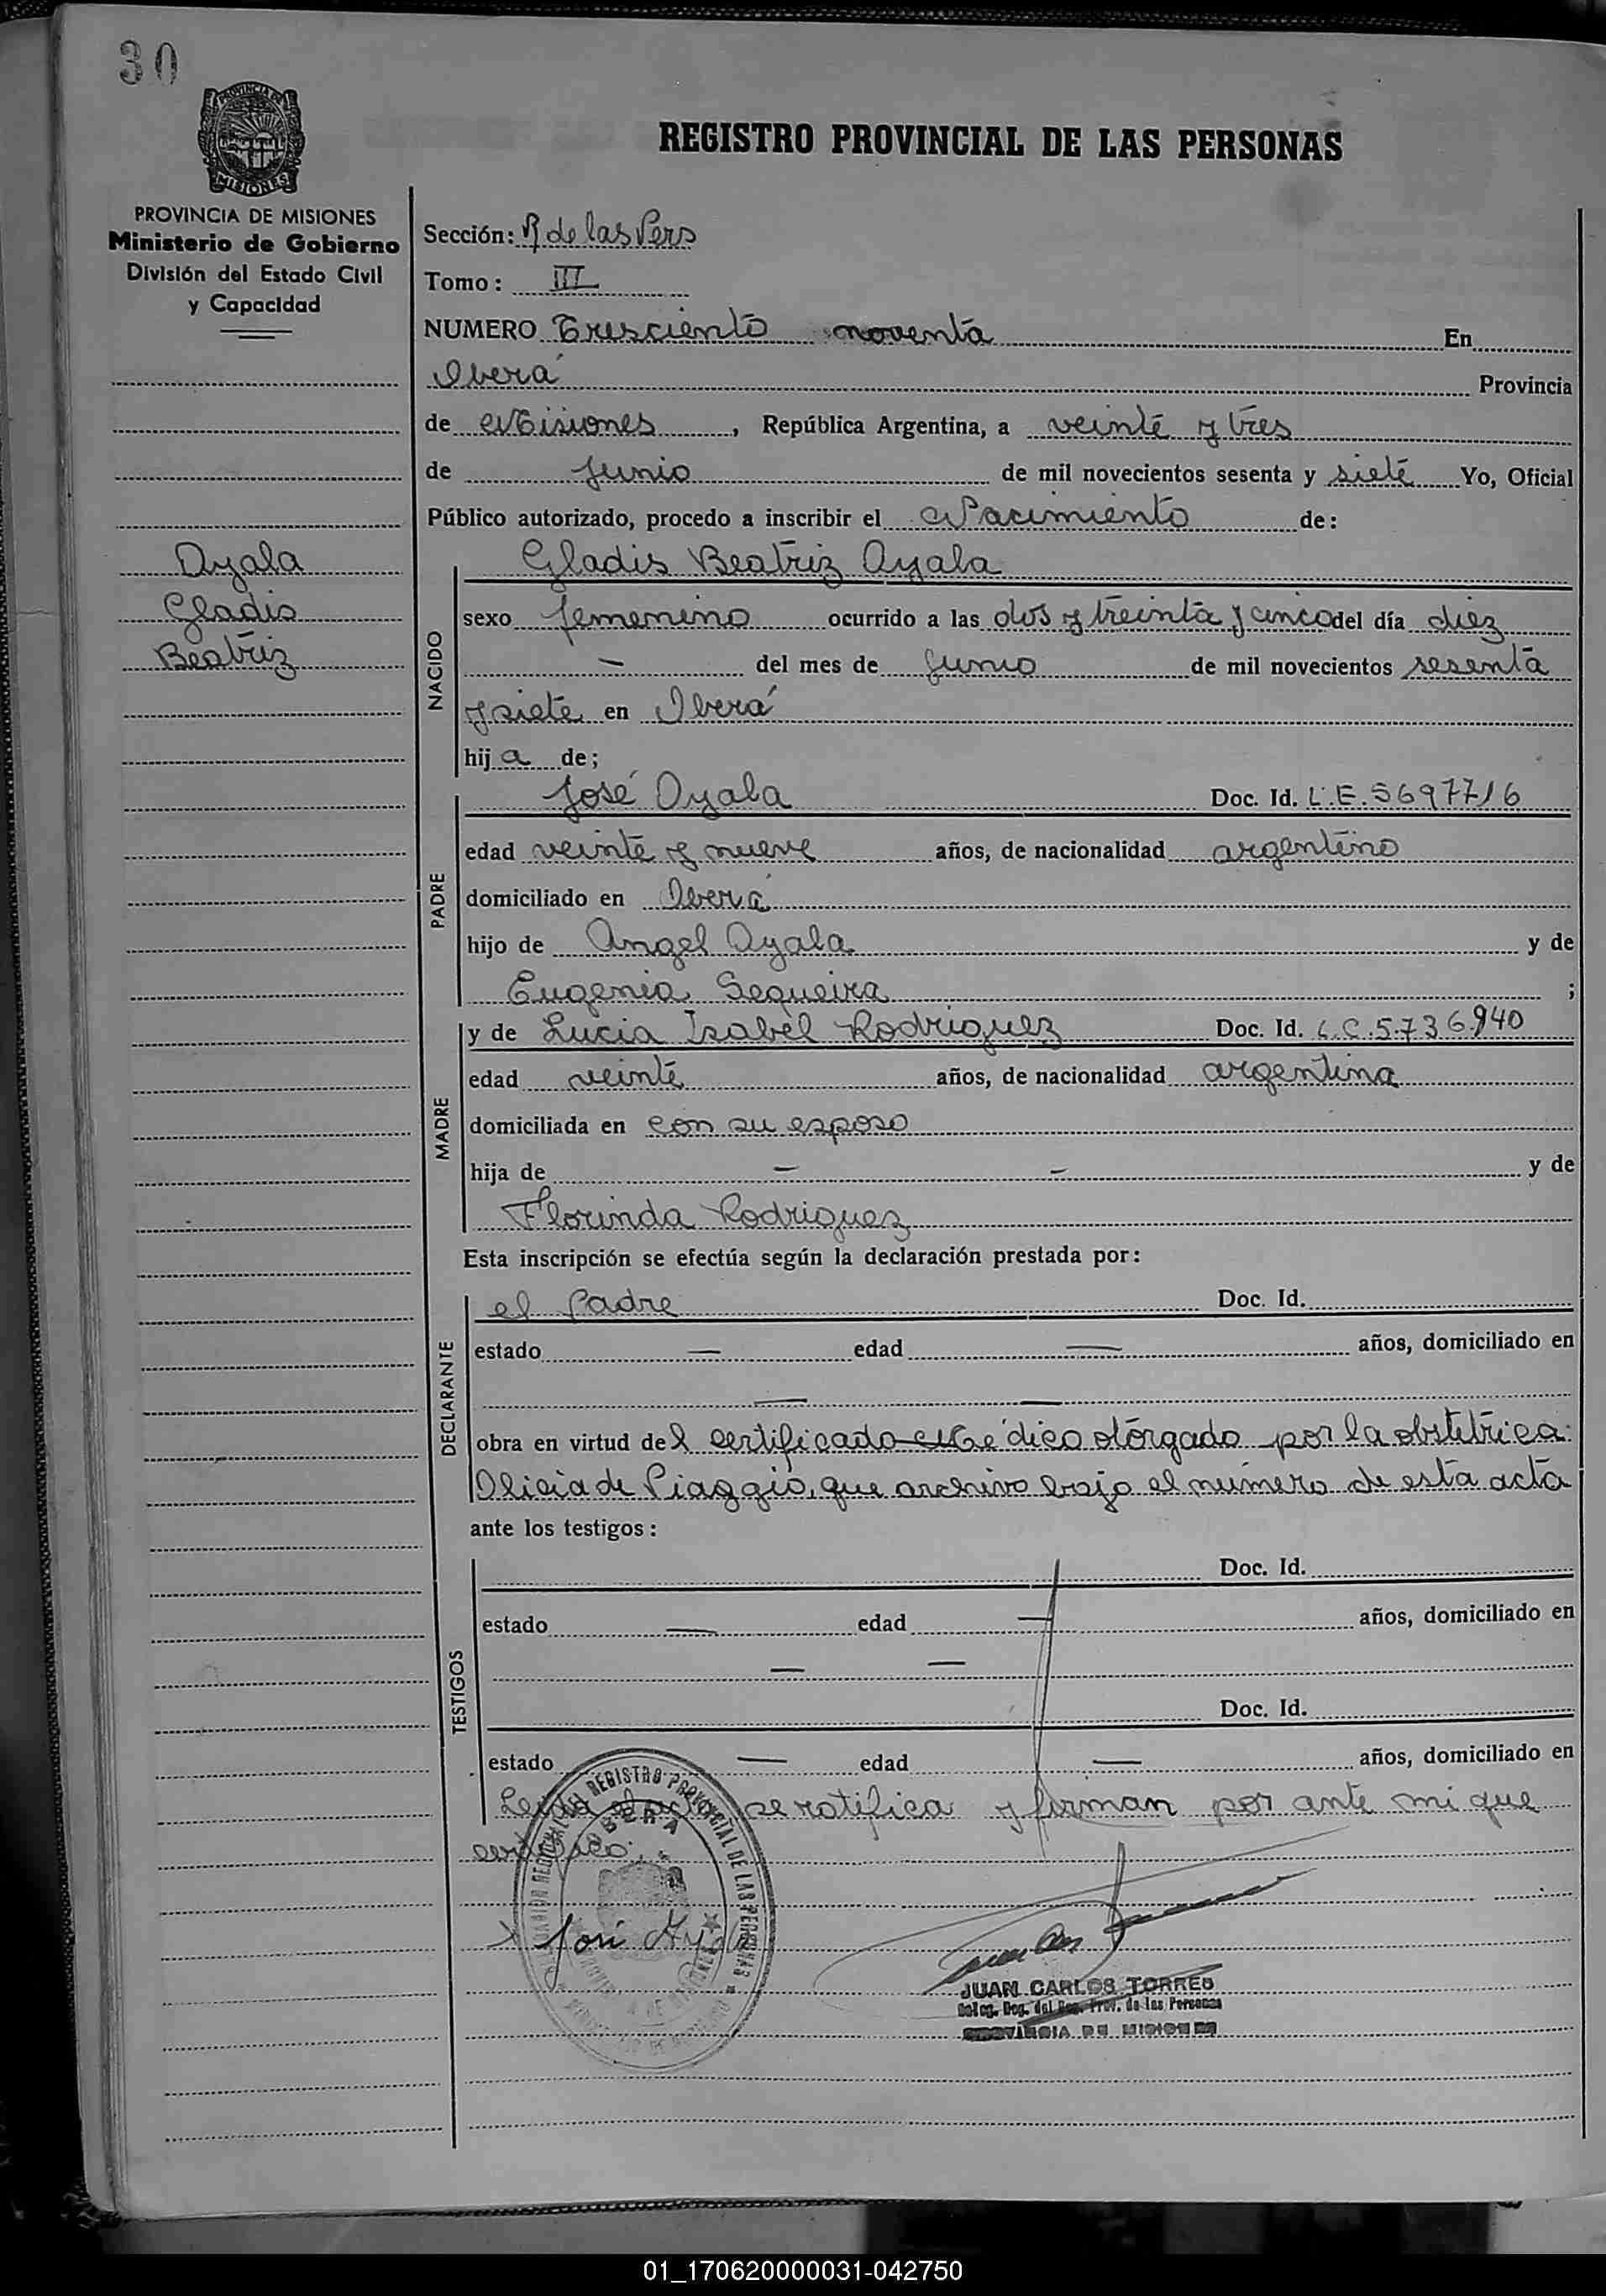 30
PROVINCIA DE
MISIONES
REGISTRO PROVINCIAL DE LAS PERSONAS
PROVINCIA DE MISIONES
Ministerio de Gobierno
División del Estado Civil
y Capacidad
Sección: R de las Pers
Tomo: III
NUMERO Tresciento noventa En
Oberá Provincia
de Misiones, República Argentina, a veinte y tres
de Junio de mil novecientos sesenta y siete Yo, Oficial
Público autorizado, procedo a inscribir el Nacimiento de:
Ayala
Gladis
Beatriz
NACIDO
Gladis Beatriz Ayala
sexo femenino ocurrido a las dos y treinta y cinco del día diez
— del mes de Junio de mil novecientos sesenta
y siete en Oberá
hij a de;
PADRE
José Ayala Doc. Id. L.E. 5697716
edad veinte y nueve años, de nacionalidad argentino
domiciliado en Oberá
hijo de Angel Ayala y de
Eugenia Sequeira ;
MADRE
y de Lucia Isabel Rodriguez Doc. Id. L.C. 5.736.940
edad veinte años, de nacionalidad argentina
domiciliada en con su esposo
hija de — — y de
Florinda Rodriguez
Esta inscripción se efectúa según la declaración prestada por:
DECLARANTE
el Padre Doc. Id.
estado — edad — años, domiciliado en
— —
obra en virtud del certificado Médico otorgado por la obstetrica:
Olicia de Piaggio, que archivo bajo el número de esta acta
ante los testigos:
TESTIGOS
Doc. Id.
estado — edad — años, domiciliado en
— —
Doc. Id.
estado — edad — años, domiciliado en
Leida el acta se ratifica y firman por ante mi que
certifico:
REGISTRO PROVINCIAL DE LAS PERSONAS
OBERA
José Ayala
JUAN CARLOS TORRES
Deleg. Reg. del Reg. Prov. de las Personas
PROVINCIA DE MISIONES
01_170620000031-042750